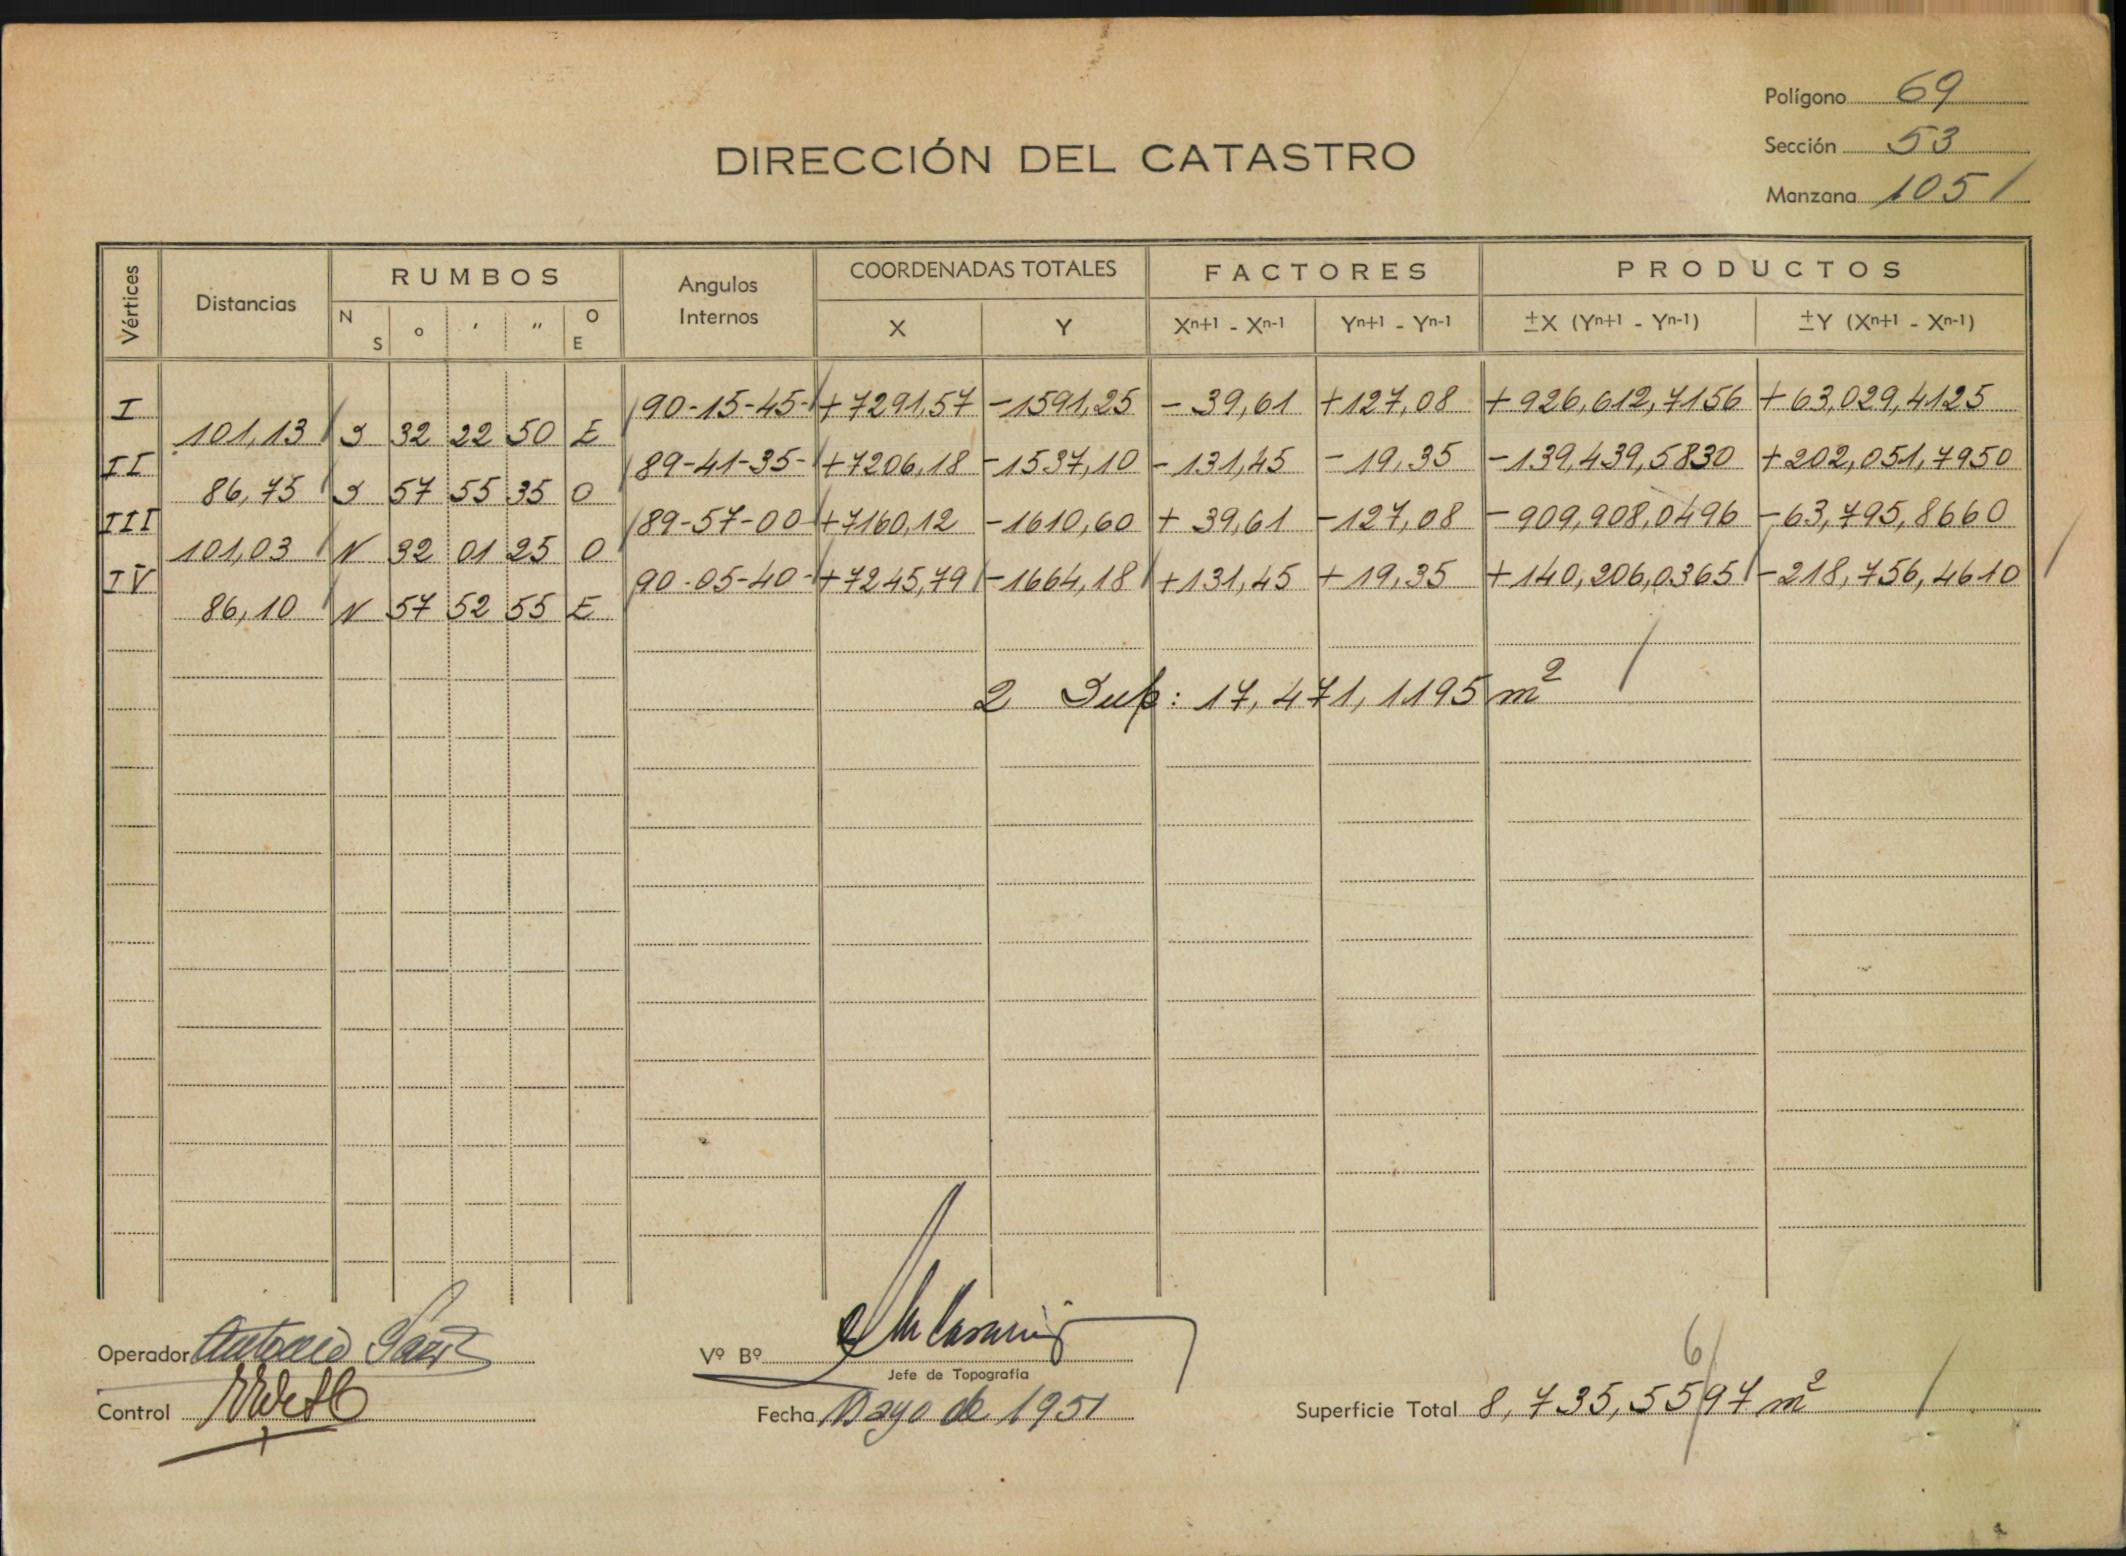 Polígono 69
Sección 53
Manzana 105 /
DIRECCIÓN DEL CATASTRO
Vértices Distancias RUMBOS Angulos Internos COORDENADAS TOTALES FACTORES PRODUCTOS
N S o ′ ″ O E X Y Xn+1 - Xn-1 Yn+1 - Yn-1 ±X (Yn+1 - Yn-1) ±Y (Xn+1 - Xn-1)
I 90-15-45- +7291,57 -1591,25 - 39,61 +127,08 +926,612,7156 +63,029,4125
101,13 S 32 22 50 E
II 89-41-35- +7206,18 -1537,10 -131,45 -19,35 -139,439,5830 +202,051,7950
86,75 S 57 55 35 O
III 89-57-00 +7160,12 -1610,60 + 39,61 -127,08 -909,908,0496 -63,795,8660
101,03 N 32 01 25 O
IV 90-05-40- +7245,79 -1664,18 +131,45 +19,35 +140,206,0365 -218,756,4610
86,10 N 57 52 55 E
2 Sup: 17,471,1195 m²
Operador Antonio
Vº Bº
Jefe de Topografía
Control
Fecha Mayo de 1951
6
Superficie Total 8,735,5597 m²